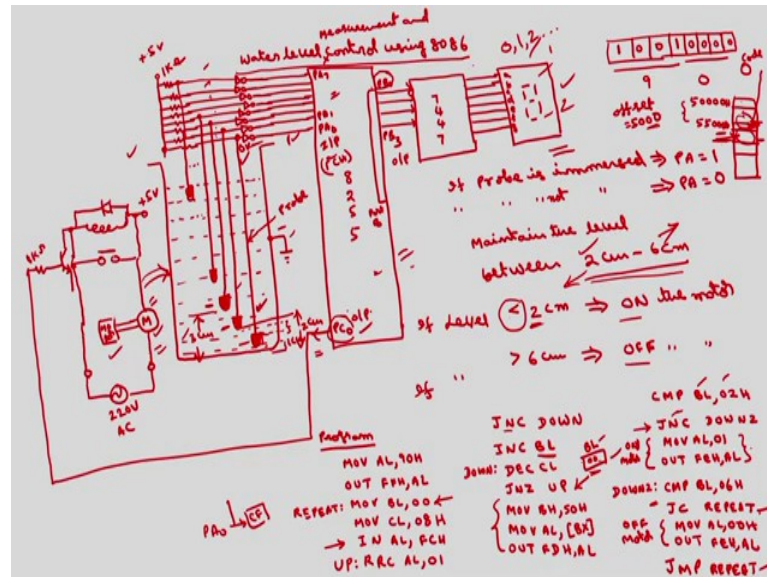 Measurement and
Water level control using 8086
+5V
1KΩ
PA7
PA1
PA0
I/P
(FCH)
8
2
5
5
PB0
PB3
O/P
7
4
4
7
0, 1, 2, ..
1
2
1 0 0 1 0 0 0 0
9 0
Code
offset
=5000
50000H
If Probe is immersed ⇒ PA = 1
" " " not " ⇒ PA = 0
Maintain the level
between 2cm - 6cm
If Level < 2cm ⇒ ON the motor
If " > 6cm ⇒ OFF " "
+5V
1KΩ
Probe
M
220V
AC
3cm
2cm
1cm
PC0 O/P
PA0
CF
Program
MOV AL, 90H
OUT FFH, AL
REPEAT: MOV BL, 00
MOV CL, 08H
IN AL, FCH
UP: RRC AL, 01
JNC DOWN
INC BL
DOWN: DEC CL
JNZ UP
MOV BH, 50H
MOV AL, [BX]
OUT FDH, AL
BL
00
CMP BL, 02H
JNC DOWN2
ON motor
MOV AL, 01
OUT FEH, AL
DOWN2: CMP BL, 06H
JC REPEAT
OFF Motor
MOV AL, 00H
OUT FEH, AL
JMP REPEAT